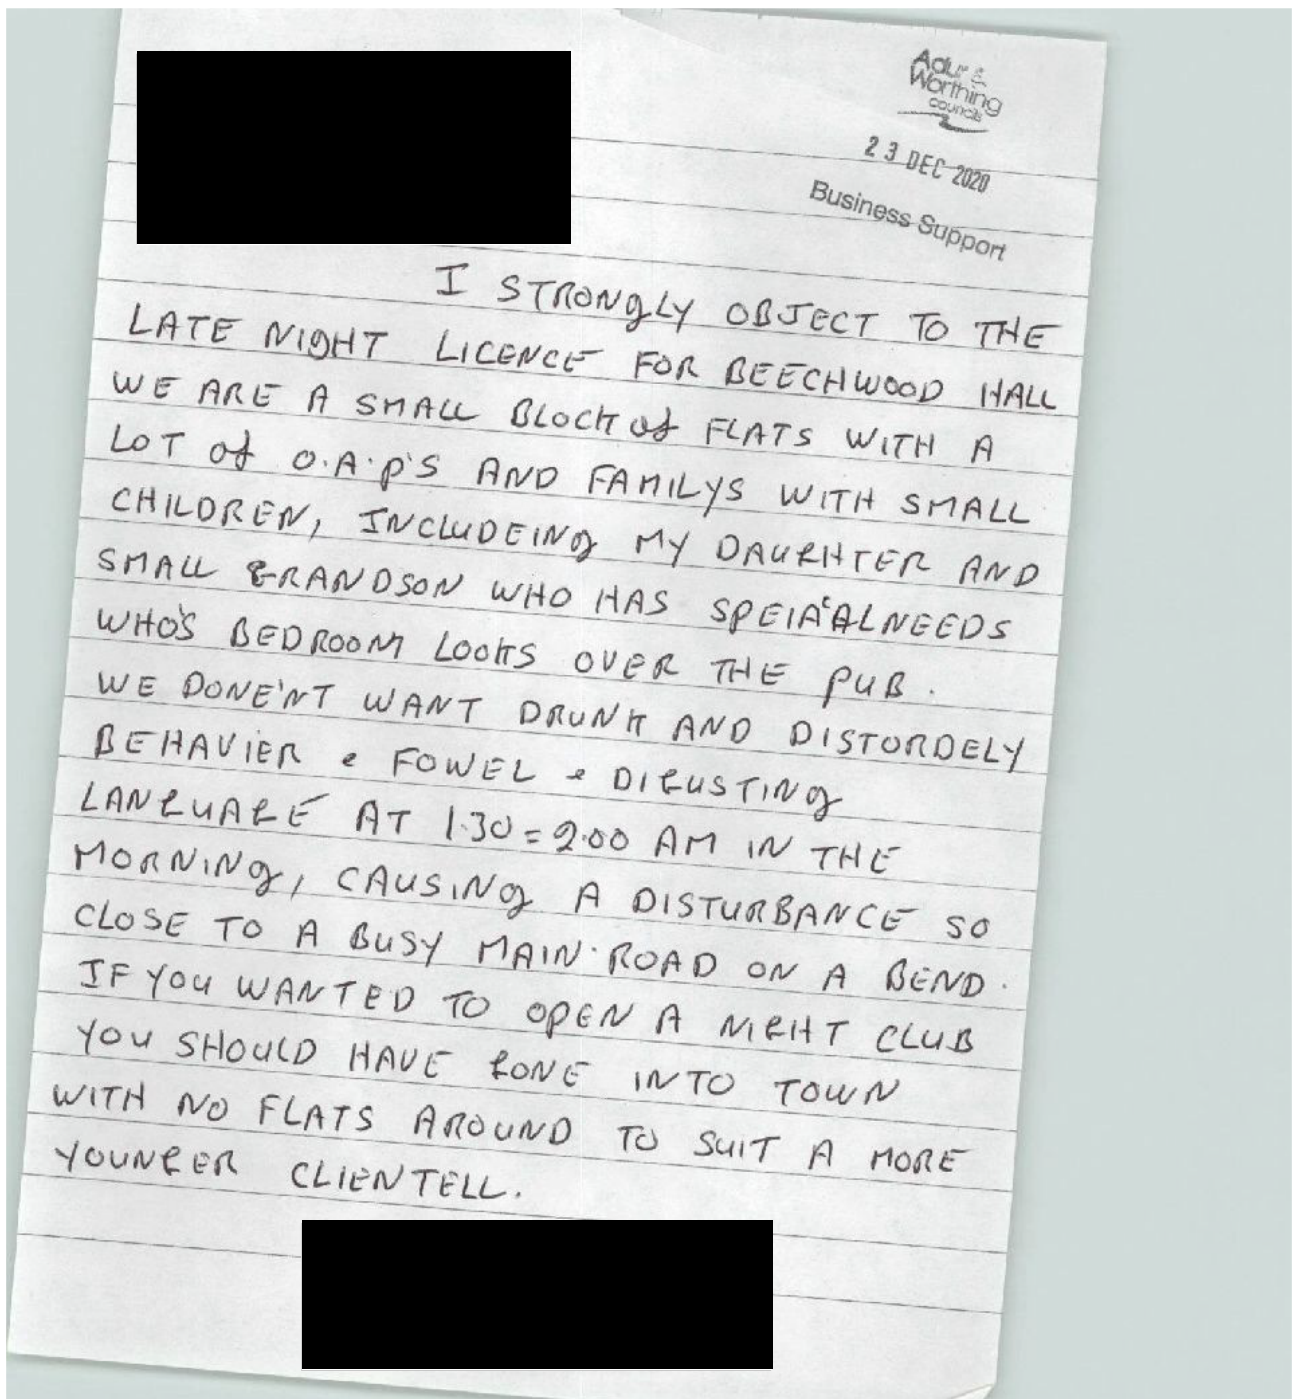 Adur &
Worthing
councils
23 DEC 2020
Business Support
I STRONgLY OBJECT TO THE
LATE NIgHT LICENCE FOR BEECHWOOD HALL
WE ARE A SMALL BLOCK of FLATS WITH A
LOT of O.A.P'S AND FAMILYS WITH SMALL
CHILDREN, INCLUDEINg MY DAUGHTER AND
SMALL GRANDSON WHO HAS SPEIA'ALNEEDS
WHO'S BEDROOM LOOKS OVER THE PUB.
WE DONE'NT WANT DRUNK AND DISTORDELY
BEHAVIER & FOWEL & DIGUSTINg
LANGUAGE AT 1.30 = 2.00 AM IN THE
MORNINg, CAUSINg A DISTURBANCE SO
CLOSE TO A BUSY MAIN ROAD ON A BEND.
IF YOU WANTED TO OPEN A NIGHT CLUB
YOU SHOULD HAVE GONE INTO TOWN
WITH NO FLATS AROUND TO SUIT A MORE
YOUNGER CLIENTELL.